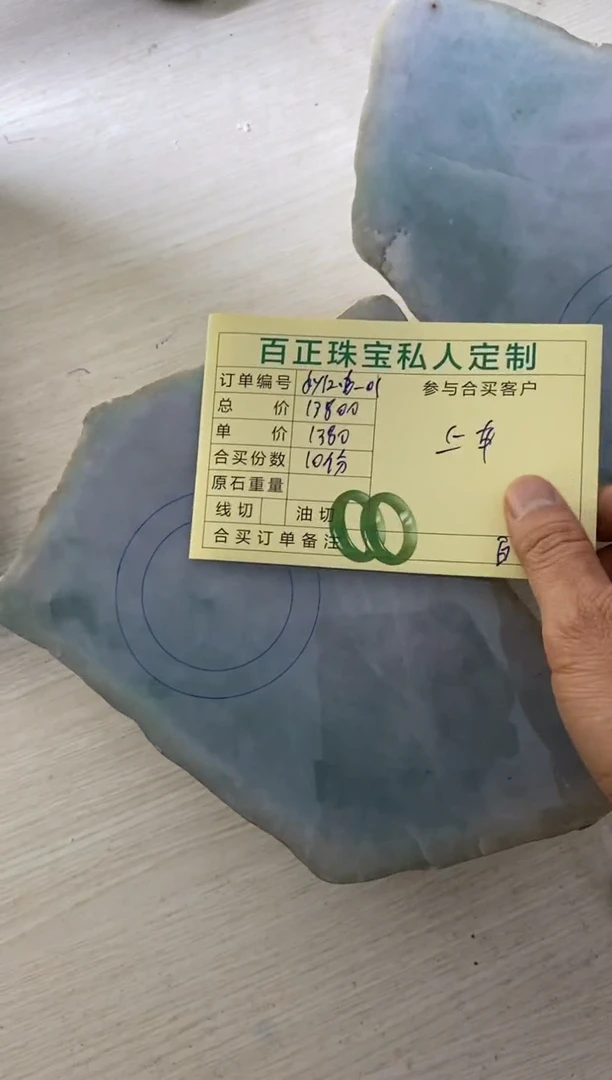 百正珠宝私人定制
订单编号
参与合买客户
总 价 13800
单 价 1380
合买份数 10份
上车
原石重量
线切 油切
合买订单备注